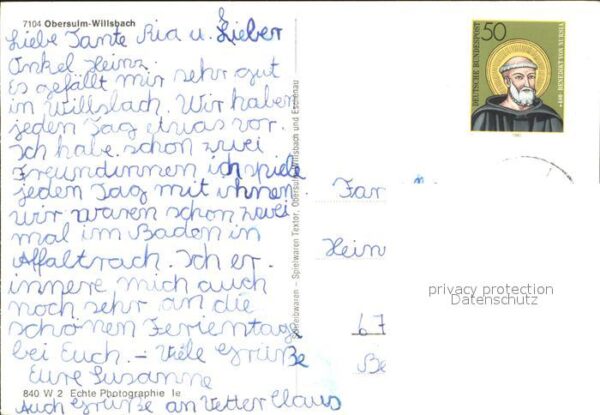 7104 Obersulm-Willsbach
Liebe Tante Ria u. Lieber
Onkel Heinz.
Es gefällt mir sehr gut
in Willsbach. Wir haben
jeden Tag etwas vor.
Ich habe schon zwei
Freundinnen ich spiele
jeden Tag mit ihnen
wir waren schon zwei
mal im Baden in
Affaltrach. Ich er.
innere mich auch
noch sehr an die
schönen Ferientage
bei Euch. - Viele Grüße
Eure Susanne
840 W 2 Echte Photographie
Auch Grüße an Vetter Claus
Schreibwaren - Spielwaren Textor, Obersulm-Willsbach und Eschenau
50
DEUTSCHE BUNDESPOST
BENEDIKT VON NURSIA
Fam
Hein
67
Be
privacy protection
Datenschutz